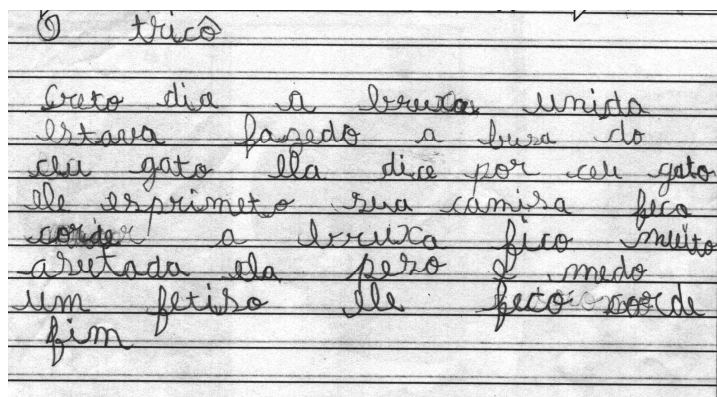 O tricô
Creto dia a bruxa unida
estava fazedo a busa do
ceu gato ela dice por ceu gato
ele esprimeto sua camisa feco
a bruxa fico muito
asutada ela peso e medo
um fetiso ele
fim